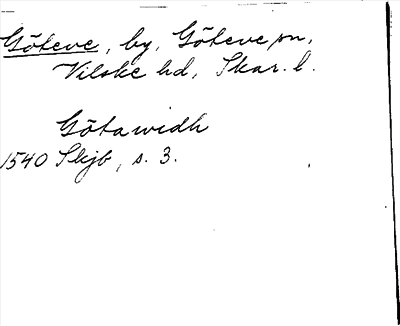 Göteve, by, Göteve sn,
Vilske hd, Skar. l.
Götawidh
1540 Skjb, s. 3.